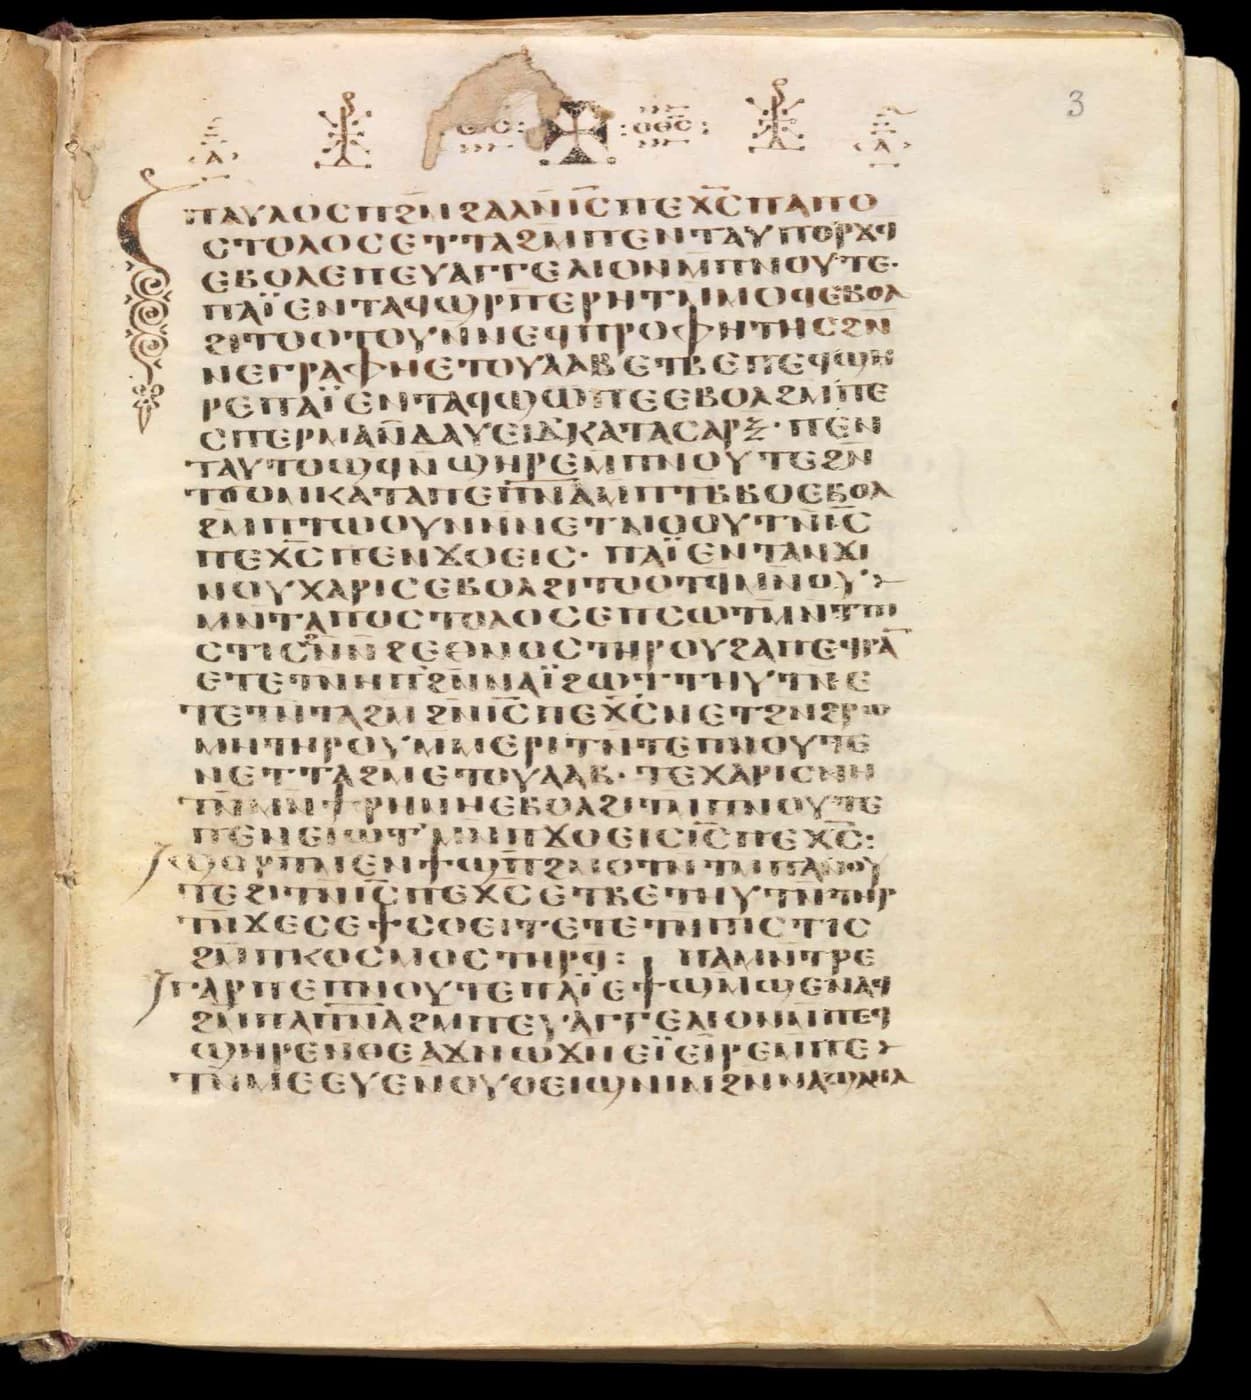 ⲁ̅ ⲓ̅ⲥ̅: :ⲟⲑ̅ⲥ̅: ⲁ̅
3
ⲡⲁⲩⲗⲟⲥ ⲡϩⲙ̄ϩⲁⲗ ⲛ̄ⲓ̅ⲥ̅ ⲡⲉⲭ̅ⲥ̅ ⲡⲁⲡⲟ
ⲥⲧⲟⲗⲟⲥ ⲉⲧⲧⲁϩⲙ ⲡⲉⲛⲧⲁⲩⲡⲟⲣϫϥ
ⲉⲃⲟⲗ ⲉⲡⲉⲩⲁⲅⲅⲉⲗⲓⲟⲛ ⲙ̄ⲡⲛⲟⲩⲧⲉ·
ⲡⲁⲓ̈ ⲉⲛⲧⲁϥϣⲣ̄ⲡⲉⲣⲏⲧ ⲙ̄ⲙⲟϥ ⲉⲃⲟⲗ
ϩⲓⲧⲟⲟⲧⲟⲩ ⲛ̄ⲛⲉϥⲡⲣⲟⲫⲏⲧⲏⲥ ϩⲛ̄
ⲛⲉⲅⲣⲁⲫⲏ ⲉⲧⲟⲩⲁⲁⲃ ⲉⲧⲃⲉ ⲡⲉϥϣⲏ
ⲣⲉ ⲡⲁⲓ̈ ⲉⲛⲧⲁϥϣⲱⲡⲉ ⲉⲃⲟⲗ ϩⲙ̄ ⲡⲉ
ⲥⲡⲉⲣⲙⲁ ⲛ̄ⲇⲁⲩⲉⲓⲇ ⲕⲁⲧⲁ ⲥⲁⲣⲝ· ⲡⲉⲛ
ⲧⲁⲩⲧⲟϣϥ ⲛ̄ϣⲏⲣⲉ ⲙ̄ⲡⲛⲟⲩⲧⲉ ϩⲛ̄
ⲧϭⲟⲙ ⲕⲁⲧⲁ ⲡⲉⲡ̅ⲛ̅ⲁ̅ ⲙ̄ⲡⲧⲃ̄ⲃⲟ ⲉⲃⲟⲗ
ϩⲙ̄ ⲡⲧⲱⲟⲩⲛ ⲛ̄ⲛⲉⲧⲙⲟⲟⲩⲧ ⲛ̄ⲓ̅ⲥ̅
ⲡⲉⲭ̅ⲥ̅ ⲡⲉⲛϫⲟⲉⲓⲥ· ⲡⲁⲓ̈ ⲉⲛⲧⲁⲛϫⲓ
ⲛⲟⲩⲭⲁⲣⲓⲥ ⲉⲃⲟⲗ ϩⲓⲧⲟⲟⲧϥ̄ ⲙⲛ̄ ⲟⲩ>
ⲙⲛ̄ⲧⲁⲡⲟⲥⲧⲟⲗⲟⲥ ⲉⲡⲥⲱⲧⲙ̄ ⲛ̄ⲧⲡⲓ
ⲥⲧⲓⲥ ϩⲛ̄ ⲛ̄ϩⲉⲑⲛⲟⲥ ⲧⲏⲣⲟⲩ ϩⲁ ⲡⲉϥⲣⲁⲛ̄
ⲉⲧⲉⲧⲛ̄ⲏⲡ ϩⲛ̄ ⲛⲁⲓ̈ ϩⲱⲧⲧⲏⲩⲧⲛ̄ ⲉ
ⲧⲉⲧⲛ̄ⲧⲁϩⲙ ϩⲛ̄ ⲓ̅ⲥ̅ ⲡⲉⲭ̅ⲥ̅ ⲛⲉⲧϩⲛ̄ ϩⲣⲱ
ⲙⲏ ⲧⲏⲣⲟⲩ ⲙ̄ⲙⲉⲣⲓⲧ ⲛ̄ⲧⲉ ⲡⲛⲟⲩⲧⲉ
ⲛⲉⲧⲧⲁϩⲙ ⲉⲧⲟⲩⲁⲁⲃ· ⲧⲉⲭⲁⲣⲓⲥ ⲛⲏ
ⲧⲛ̄ ⲙⲛ̄ ϯⲣⲏⲛⲏ ⲉⲃⲟⲗ ϩⲓⲧⲙ̄ ⲡⲛⲟⲩⲧⲉ
ⲡⲉⲛⲉⲓⲱⲧ ⲙⲛ̄ ⲡϫⲟⲉⲓⲥ ⲓ̅ⲥ̅ ⲡⲉⲭ̅ⲥ̅:
ϣⲟⲣⲡ ⲙⲉⲛ ϯϣⲡ̄ϩⲙⲟⲧ ⲛ̄ⲧⲙ̄ ⲡⲁⲛⲟⲩ
ⲧⲉ ϩⲓⲧⲛ̄ ⲓ̅ⲥ̅ ⲡⲉⲭ̅ⲥ̅ ⲉⲧⲃⲉⲧⲏⲩⲧⲛ̄ ⲧⲏⲣ
ⲧⲛ̄ ϫⲉ ⲥⲉϯⲥⲟⲉⲓⲧ ⲉⲧⲉⲧⲛ̄ⲡⲓⲥⲧⲓⲥ
ϩⲙ̄ ⲡⲕⲟⲥⲙⲟⲥ ⲧⲏⲣϥ: ⲡⲁⲙⲛ̄ⲧⲣⲉ
ⲅⲁⲣ ⲡⲉ ⲡⲛⲟⲩⲧⲉ ⲡⲁⲓ̈ ⲉϯϣⲙ̄ϣⲉ ⲛⲁϥ
ϩⲙ̄ ⲡⲁⲡ̅ⲛ̅ⲁ̅ ϩⲙ̄ ⲡⲉⲩⲁⲅⲅⲉⲗⲓⲟⲛ ⲙ̄ⲡⲉϥ
ϣⲏⲣⲉ ⲛ̄ⲑⲉ ⲁϫⲛ̄ ⲱϫⲛ̄ ⲉⲓ̈ⲉⲓⲣⲉ ⲙ̄ⲡⲉ>
ⲧⲛ̄ⲙⲉⲉⲩⲉ ⲛ̄ⲟⲩⲟⲉⲓϣ ⲛⲓⲙ ϩⲛ̄ ⲛⲁϣⲗⲏⲗ